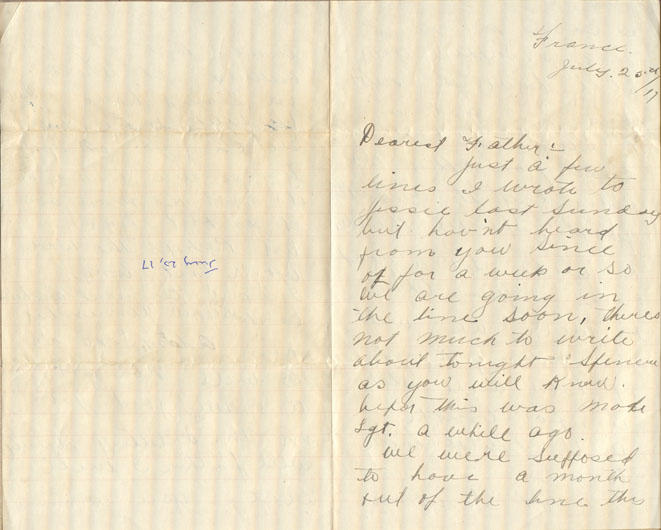 July 23, 17
France.
July. 23rd/17
Dearest Father:-
Just a few
lines I wrote to
Jessie last Sunday
but hav'nt heard
from you since
of for a week or so
we are going in
the line soon, theres
not much to write
about tonight Spencer
as you will know.
befor this was made
Sgt. a while ago.
We were supposed
to have a month
out of the line this